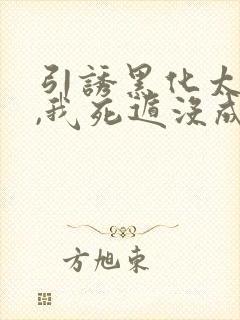 引誘黑化太
,我死遁沒成
方旭東